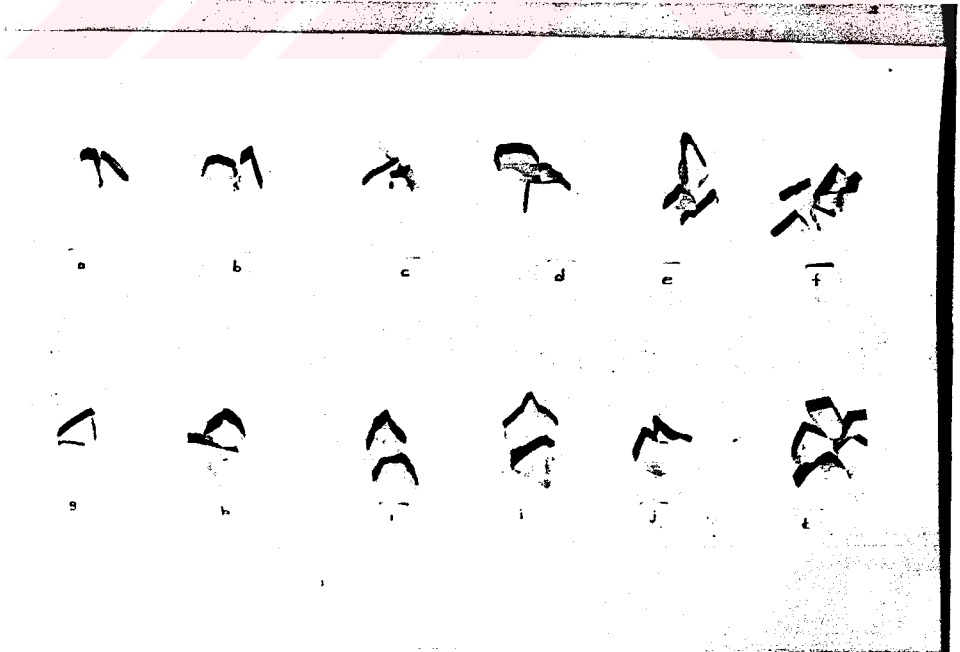 a b c d e f
g h ı i j